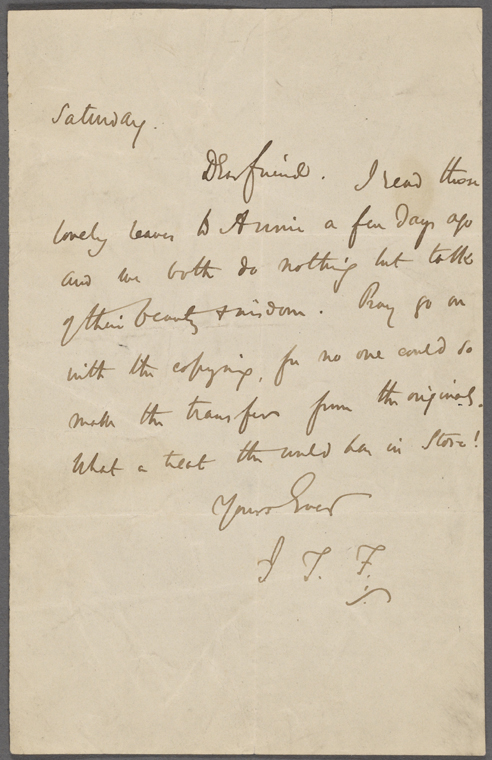 Saturday.
Dear friend. I read those
lovely leaves to Annie a few days ago
and we both do nothing but talk
of their beauty & wisdom. Pray go on
with the copying, for no one could so
make the transfer from the originals.
What a treat the world has in store!
Yours Ever
J. T. F.